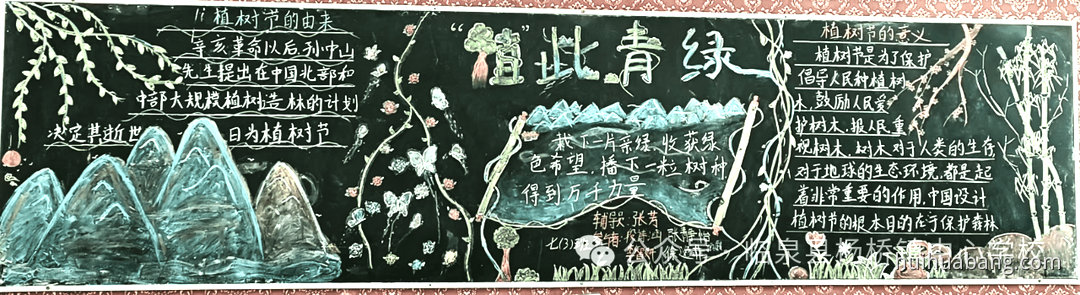 植树节的由来
辛亥革命以后孙中山
先生提出在中国北部和
中部大规模植树造林的计划
决定其逝世
日为植树节
“植”此青绿
栽下一片希绿,收获绿
色希望,播下一粒树种
得到万千力量
辅导:张芳
七(3)班
植树节的意义
植树节是为了保护
倡导人民种植树
木,鼓励人民爱
护树木,报人民重
视树木,树木对于人类的生存
对于地球的生态环境,都是起
着非常重要的作用,中国设计
植树节的根本目的在于保护森林
公众号·临泉县杨桥镇中心学校
ijiuhuabang.com